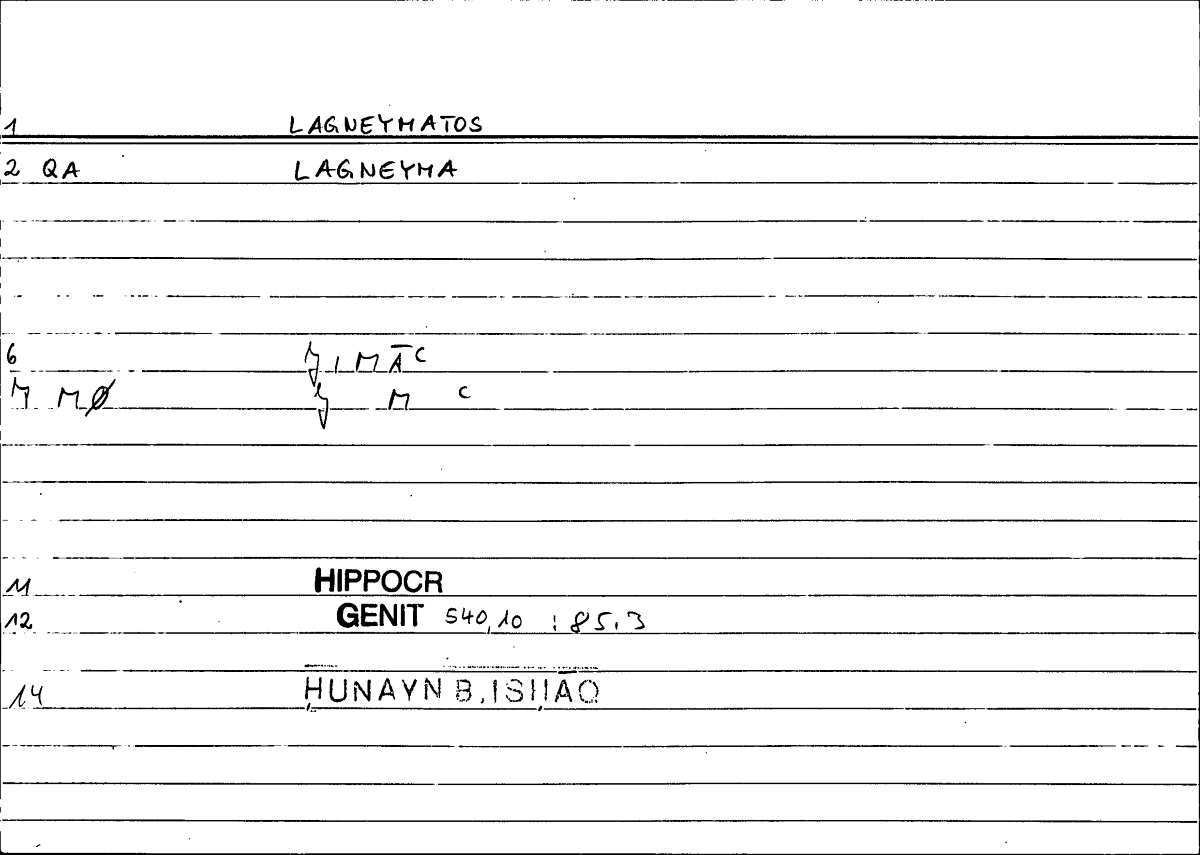 1 LAGNEYMATOS
2 QA LAGNEYMA
6 Ɣ I M ĀC
M MØ M C
11 HIPPOCR
12 GENIT 540,10 : 85.3
14 ḤUNAYN B. ISḤĀQ